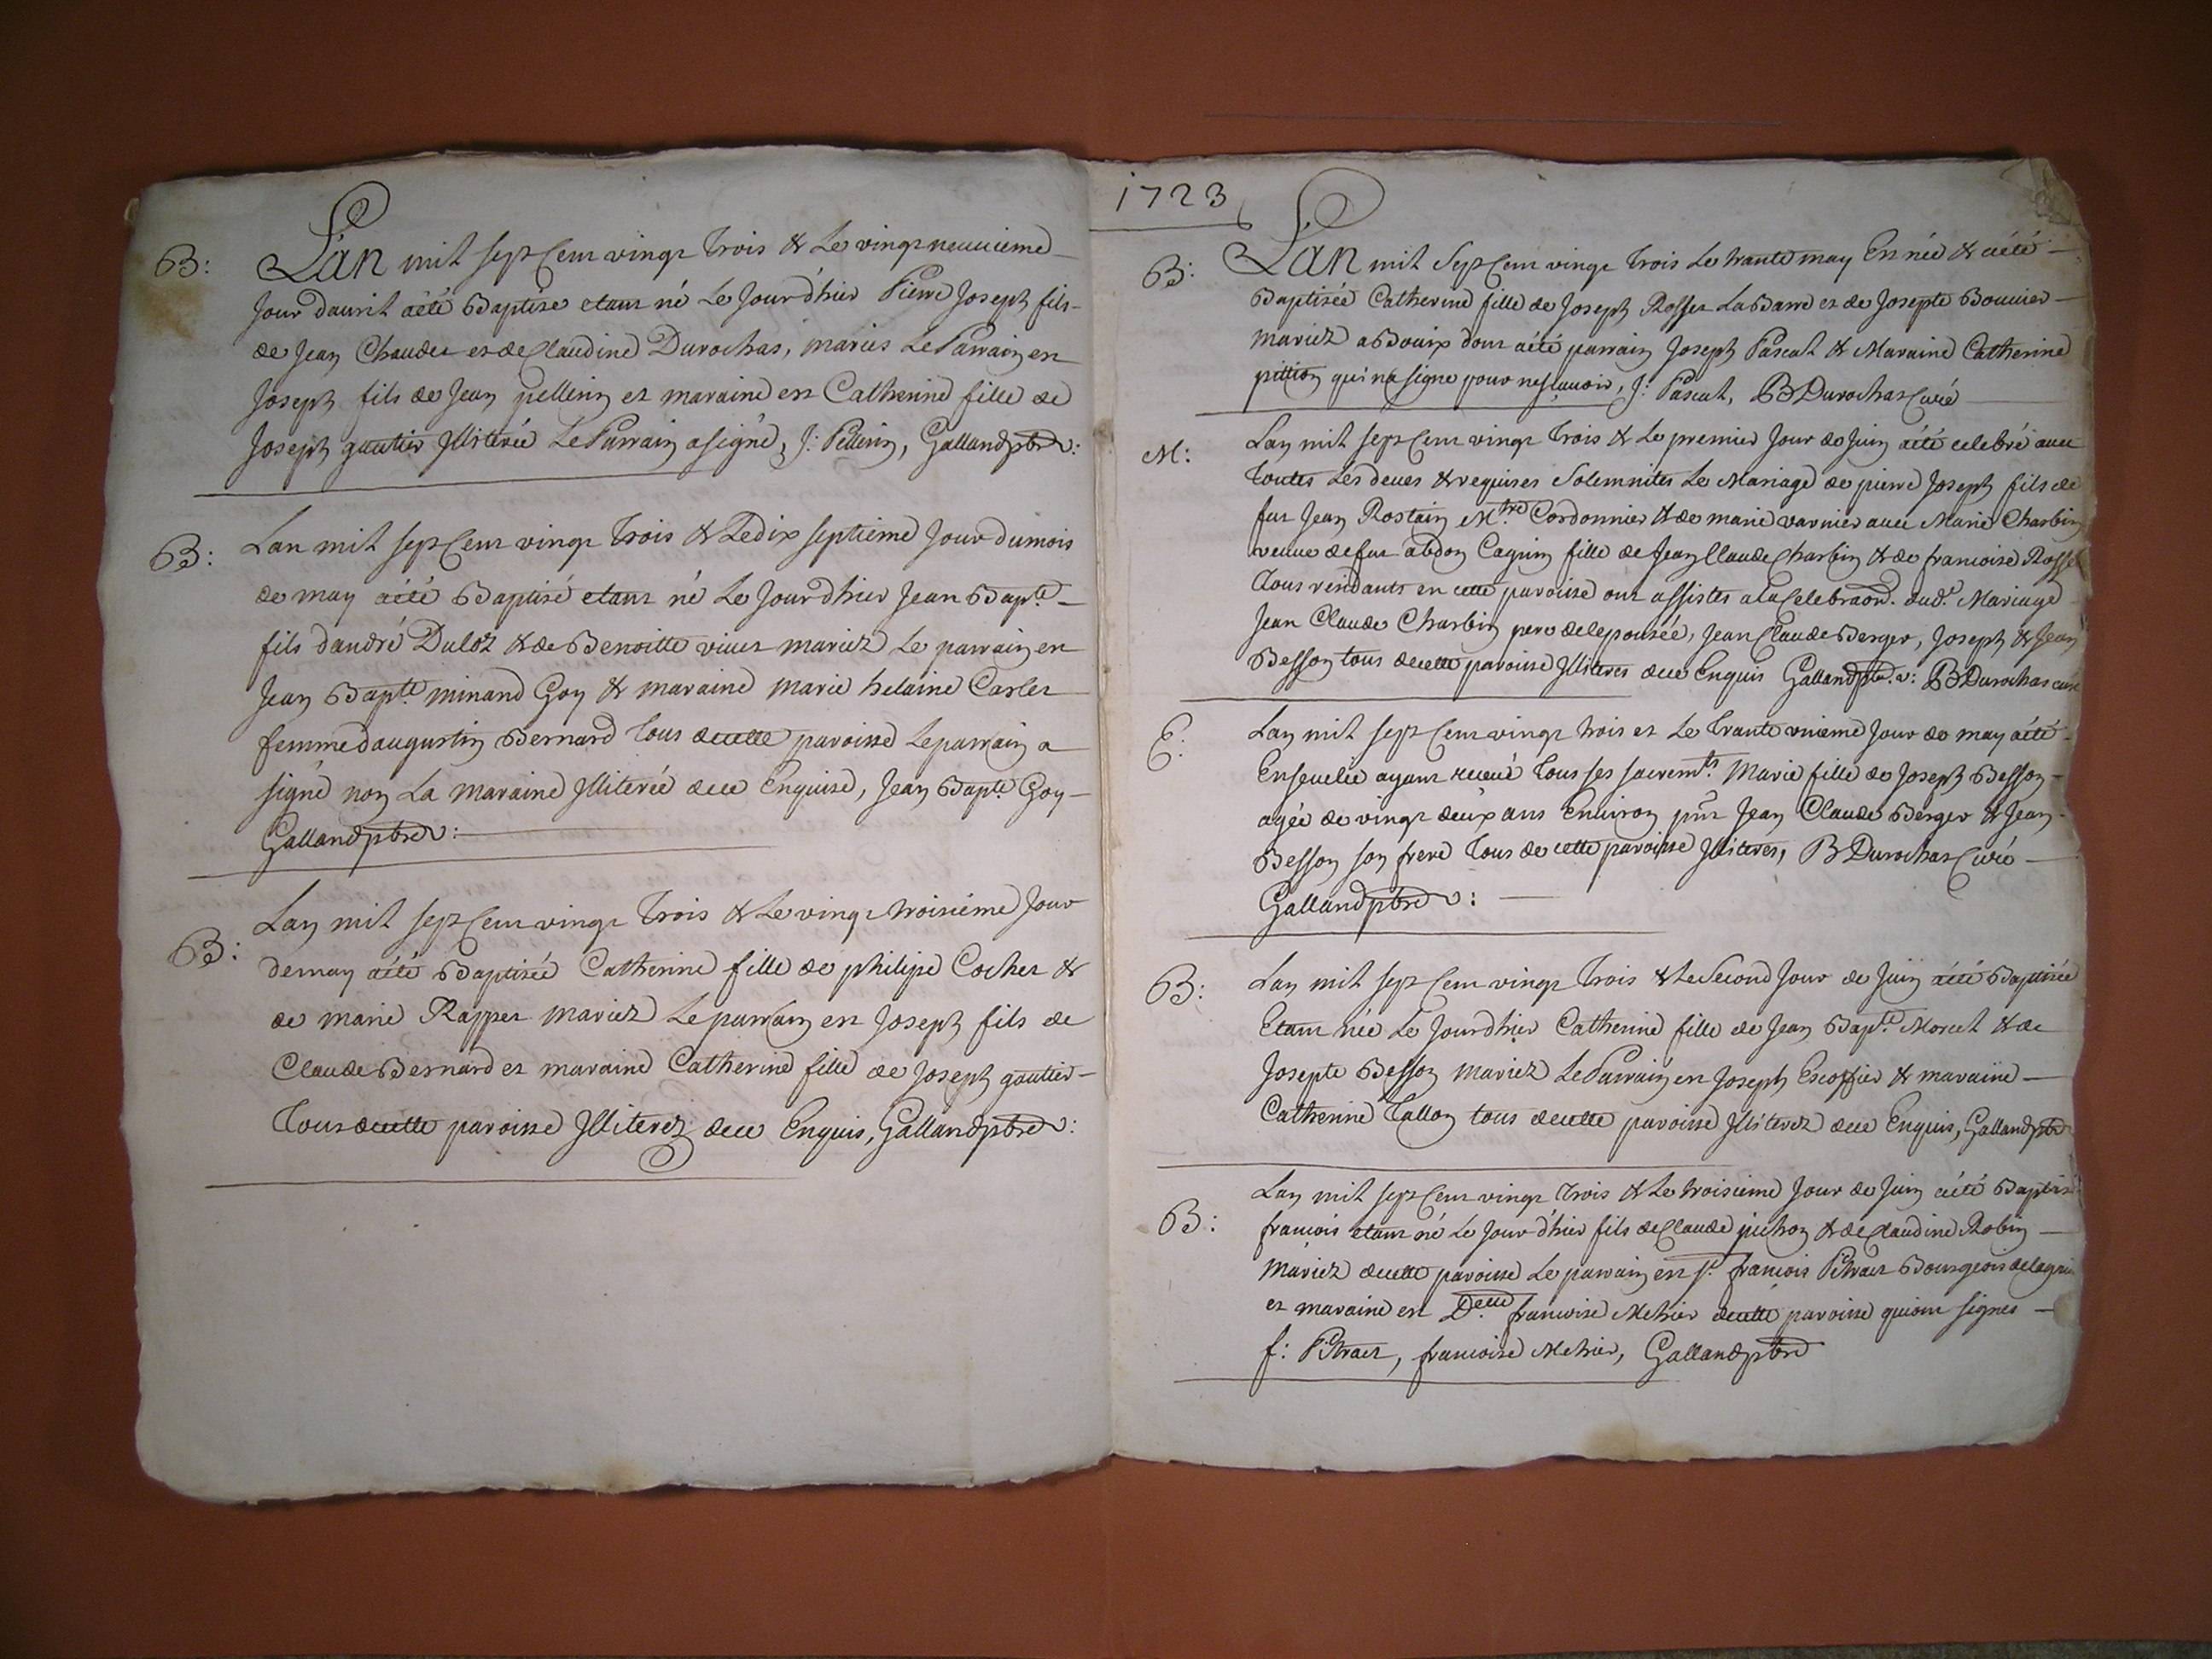 B: L'an mil sept Cent vingt trois & Le vingt neuuieme
Jour d'auril aété Baptise etant né Le Jour d'hier Pierre Joseph fils
de Jean Chaudet et de Claudine Durochas, mariés Le Parrain est
Joseph fils de Jean pellerin et maraine est Catherine fille de
Joseph gautier Jlliterée Le Parrain a signé, J: Pellerin, Galland ptre v:
B: Lan mil sept Cent vingt trois & Le dix septieme Jour du mois
de may aété Baptisé etant né Le Jour d'hier Jean Bapte
fils dandré & de Benoitte mariez Le parrain est
Jean Bapte minand Goy & maraine marie helaine Carlet
femme daugustin Bernard tous decette paroisse Le parrain a
signé non La maraine Jlliterée dece Enquise, Jean Bapte Goy
Galland ptre v:
B: Lan mil sept Cent vingt trois & Le vingt troisieme Jour
demay aété Baptisée Catherine fille de philipe Cochet &
de marie Rappet mariez Le parrain est Joseph fils de
Claude Bernard et maraine Catherine fille de Joseph gautier
tous decette paroisse Jlliterez dece Enquis, Galland ptre v:
1723
B: L'an mil Sept Cent vingt trois Le trante may Est née & aété
Baptisée Catherine fille de Joseph Rosset LaBarre et de Josepte Bouuier
mariez dont aété parrain Joseph Pascal & Maraine Catherine
pittion qui na signe pour ne sçauoir, J: Pascal, B Durochas Curé
M: Lan mil sept Cent vingt trois & Le premier Jour de Juin aété celebré auec
toutes Les deues & requises Solemnites Le Mariage de pierre Joseph fils de
fut Jean Rostain Mtre Cordonnier & de marie varnier auec Marie Charbin
veuue de fut abdon Cagnin fille de Jean Claude Charbin & de francoise Rosset
tous residants en cette paroisse ont assistes a La Celebraon. dudt Mariage
Jean Claude Charbin pere de lepousée, Jean Claude Berger, Joseph & Jean
Besson tous decette paroisse Jlliteres dece Enquis Galland ptre v: B Durochas curé
E: Lan mil sept Cent vingt trois et Le trante vnieme Jour de may aété
Enseuelie ayant receué tous ses sacremts Marie fille de Joseph Besson
agée de vingt deux ans Enuiron pnt Jean Claude Berger & Jean
Besson son frere tous de cette paroisse Jlliteres, B Durochas Curé
Galland ptre v:
B: Lan mil sept Cent vingt trois & Le Second Jour de Juin aété Baptisée
Etant née Le Jour d'hier Catherine fille de Jean Bapte Morel & de
Josepte Besson mariez Le Parrain est Joseph Escoffier & maraine
Catherine tallon tous decette paroisse Jlliterez dece Enquis, Galland ptre
B: Lan mil sept Cent vingt trois & Le troisieme Jour de Juin aété Baptisé
francois etant né Le Jour d'hier fils de Claude pichon & de Claudine Robin
mariez decette paroisse Le parrain est sr francois Pitrat Bourgeois
et maraine est Delle francoise Metrier decette paroisse qui ont signés
f: Pitrat, francoise Metrier, Galland ptre